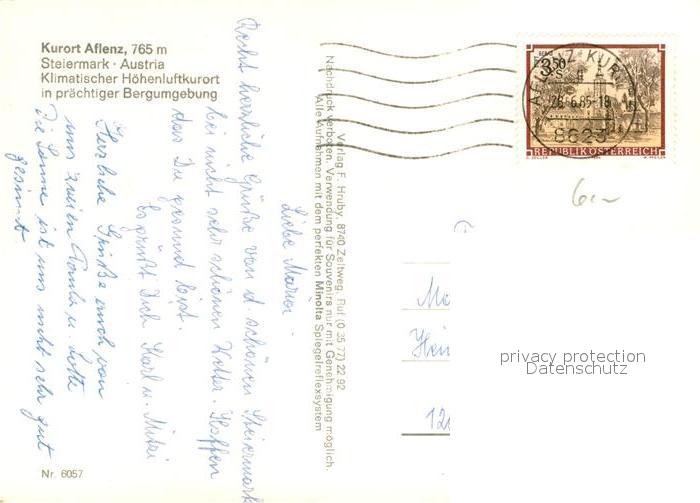 Kurort Aflenz, 765 m
Steiermark · Austria
Klimatischer Höhenluftkurort
in prächtiger Bergumgebung
Liebe Maria.
Recht herzliche Grüße von d. schönen Steiermark
bei nicht sehr schönen Wetter. Hoffen
das Du gesund bist.
Es grüßt Dich Karl u. Mitzi
Herzliche Grüße auch von
uns zweien u. Lotte
Die Sonne ist uns nicht sehr gut
gesinnt
Nr. 6057
Verlag F. Hruby, 8740 Zeltweg, Ruf (0 35 77) 22 92
Nachdruck verboten. Verwendung für Souvenirs nur mit Genehmigung möglich.
Alle Aufnahmen mit dem perfekten Minolta Spiegelreflexsystem
3.50
S
AFLENZ KURORT
28.-6.85-18
8623
REPUBLIK ÖSTERREICH
6.-
privacy protection
Datenschutz